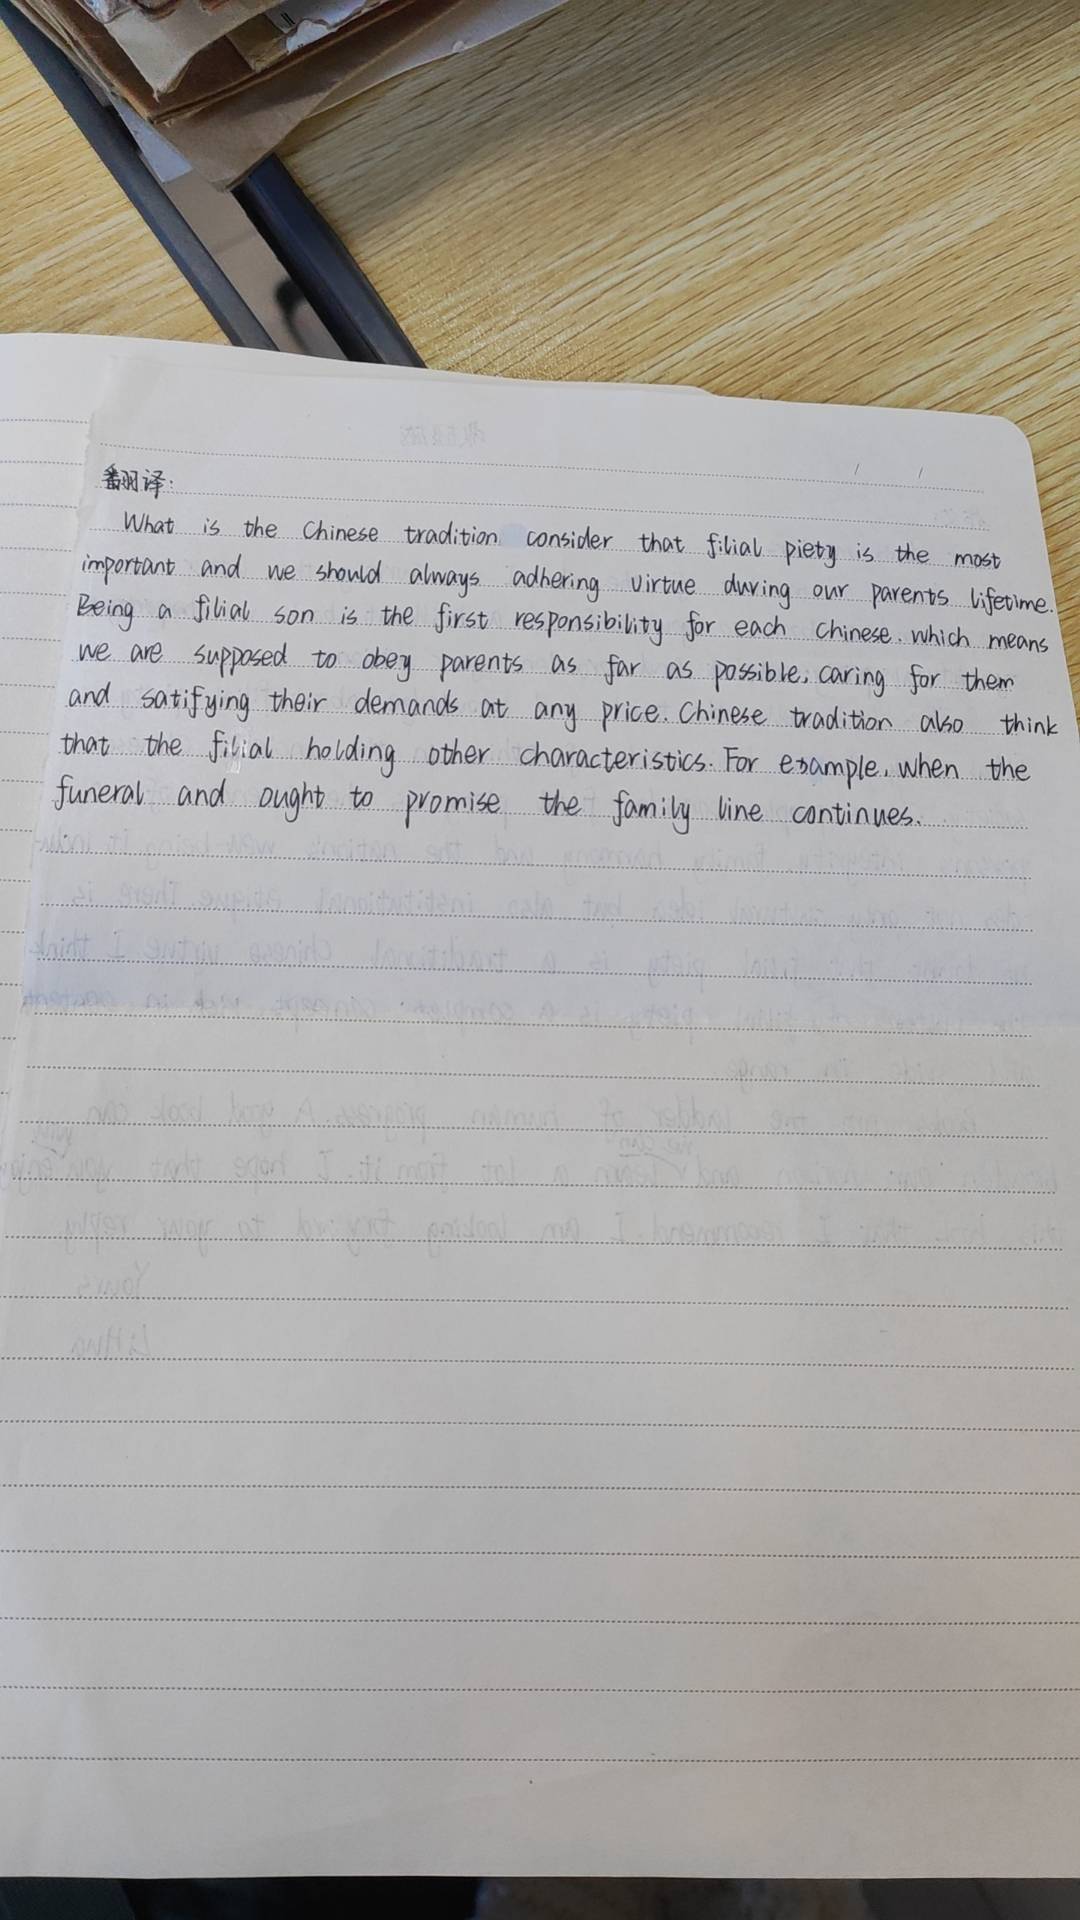 翻译:
What is the Chinese tradition consider that filial piety is the most
important and we should always adhering virtue during our parents lifetime.
Being a filial son is the first responsibility for each chinese. which means
we are supposed to obey parents as far as possible, caring for them
and satifying their demands at any price. Chinese tradition also think
that the filial holding other characteristics. For example, when the
funeral and ought to promise the family line continues.